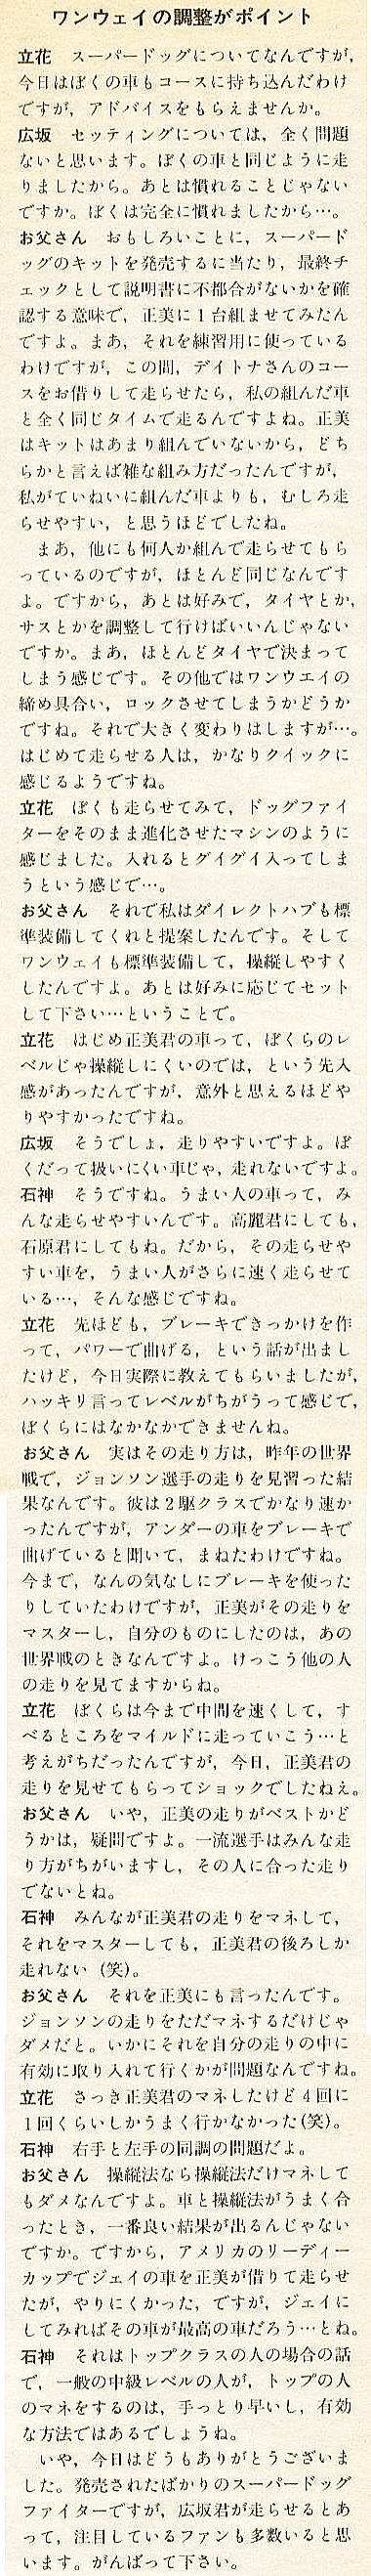 ワンウェイの調整がポイント
立花　スーパードッグについてなんですが,
今日はぼくの車もコースに持ち込んだわけ
ですが, アドバイスをもらえませんか。
広坂　セッティングについては, 全く問題
ないと思います。ぼくの車と同じように走
りましたから。あとは慣れることじゃない
ですか。ぼくは完全に慣れましたから…。
お父さん　おもしろいことに, スーパード
ッグのキットを発売するに当たり, 最終チ
ェックとして説明書に不都合がないかを確
認する意味で, 正美に1台組ませてみたん
ですよ。まあ, それを練習用に使っている
わけですが, この間, デイトナさんのコー
スをお借りして走らせたら, 私の組んだ車
と全く同じタイムで走るんですよね。正美
はキットはあまり組んでいないから, どち
らかと言えば雑な組み方だったんですが,
私がていねいに組んだ車よりも, むしろ走
らせやすい, と思うほどでしたね。
　まあ, 他にも何人か組んで走らせてもら
っているのですが, ほとんど同じなんです
よ。ですから, あとは好みで, タイヤとか,
サスとかを調整して行けばいいんじゃない
ですか。まあ, ほとんどタイヤで決まって
しまう感じです。その他ではワンウエイの
締め具合い, ロックさせてしまうかどうか
ですね。それで大きく変わりはしますが…。
はじめて走らせる人は, かなりクイックに
感じるようですね。
立花　ぼくも走らせてみて, ドッグファイ
ターをそのまま進化させたマシンのように
感じました。入れるとグイグイ入ってしま
うという感じで…。
お父さん　それで私はダイレクトハブも標
準装備してくれと提案したんです。そして
ワンウェイも標準装備して, 操縦しやすく
したんですよ。あとは好みに応じてセット
して下さい…ということで。
立花　はじめ正美君の車って, ぼくらのレ
ベルじゃ操縦しにくいのでは, という先入
感があったんですが, 意外と思えるほどや
りやすかったですね。
広坂　そうでしょ, 走りやすいですよ。ぼ
くだって扱いにくい車じゃ, 走れないですよ。
石神　そうですね。うまい人の車って, み
んな走らせやすいんです。高麗君にしても,
石原君にしてもね。だから, その走らせや
すい車を, うまい人がさらに速く走らせて
いる…, そんな感じですね。
立花　先ほども, ブレーキできっかけを作
って, パワーで曲げる, という話が出まし
たけど, 今日実際に教えてもらいましたが,
ハッキリ言ってレベルがちがうって感じで,
ぼくらにはなかなかできませんね。
お父さん　実はその走り方は, 昨年の世界
戦で, ジョンソン選手の走りを見習った結
果なんです。彼は2駆クラスでかなり速か
ったんですが, アンダーの車をブレーキで
曲げていると聞いて, まねたわけですね。
今まで, なんの気なしにブレーキを使った
りしていたわけですが, 正美がその走りを
マスターし, 自分のものにしたのは, あの
世界戦のときなんですよ。けっこう他の人
の走りを見てますからね。
立花　ぼくらは今まで中間を速くして, す
べるところをマイルドに走っていこう…と
考えがちだったんですが, 今日, 正美君の
走りを見せてもらってショックでしたねえ。
お父さん　いや, 正美の走りがベストかど
うかは, 疑問ですよ。一流選手はみんな走
り方がちがいますし, その人に合った走り
でないとね。
石神　みんなが正美君の走りをマネして,
それをマスターしても, 正美君の後ろしか
走れない (笑)。
お父さん　それを正美にも言ったんです。
ジョンソンの走りをただマネするだけじゃ
ダメだと。いかにそれを自分の走りの中に
有効に取り入れて行くかが問題なんですね。
立花　さっき正美君のマネしたけど4回に
1回くらいしかうまく行かなかった(笑)。
石神　右手と左手の同調の問題だよ。
お父さん　操縦法なら操縦法だけマネして
もダメなんですよ。車と操縦法がうまく合
ったとき, 一番良い結果が出るんじゃない
ですか。ですから, アメリカのリーディー
カップでジェイの車を正美が借りて走らせ
たが, やりにくかった, ですが, ジェイに
してみればその車が最高の車だろう…とね。
石神　それはトップクラスの人の場合の話
で, 一般の中級レベルの人が, トップの人
のマネをするのは, 手っとり早いし, 有効
な方法ではあるでしょうね。
　いや, 今日はどうもありがとうございま
した。発売されたばかりのスーパードッグ
ファイターですが, 広坂君が走らせるとあ
って, 注目しているファンも多数いると思
います。がんばって下さい。